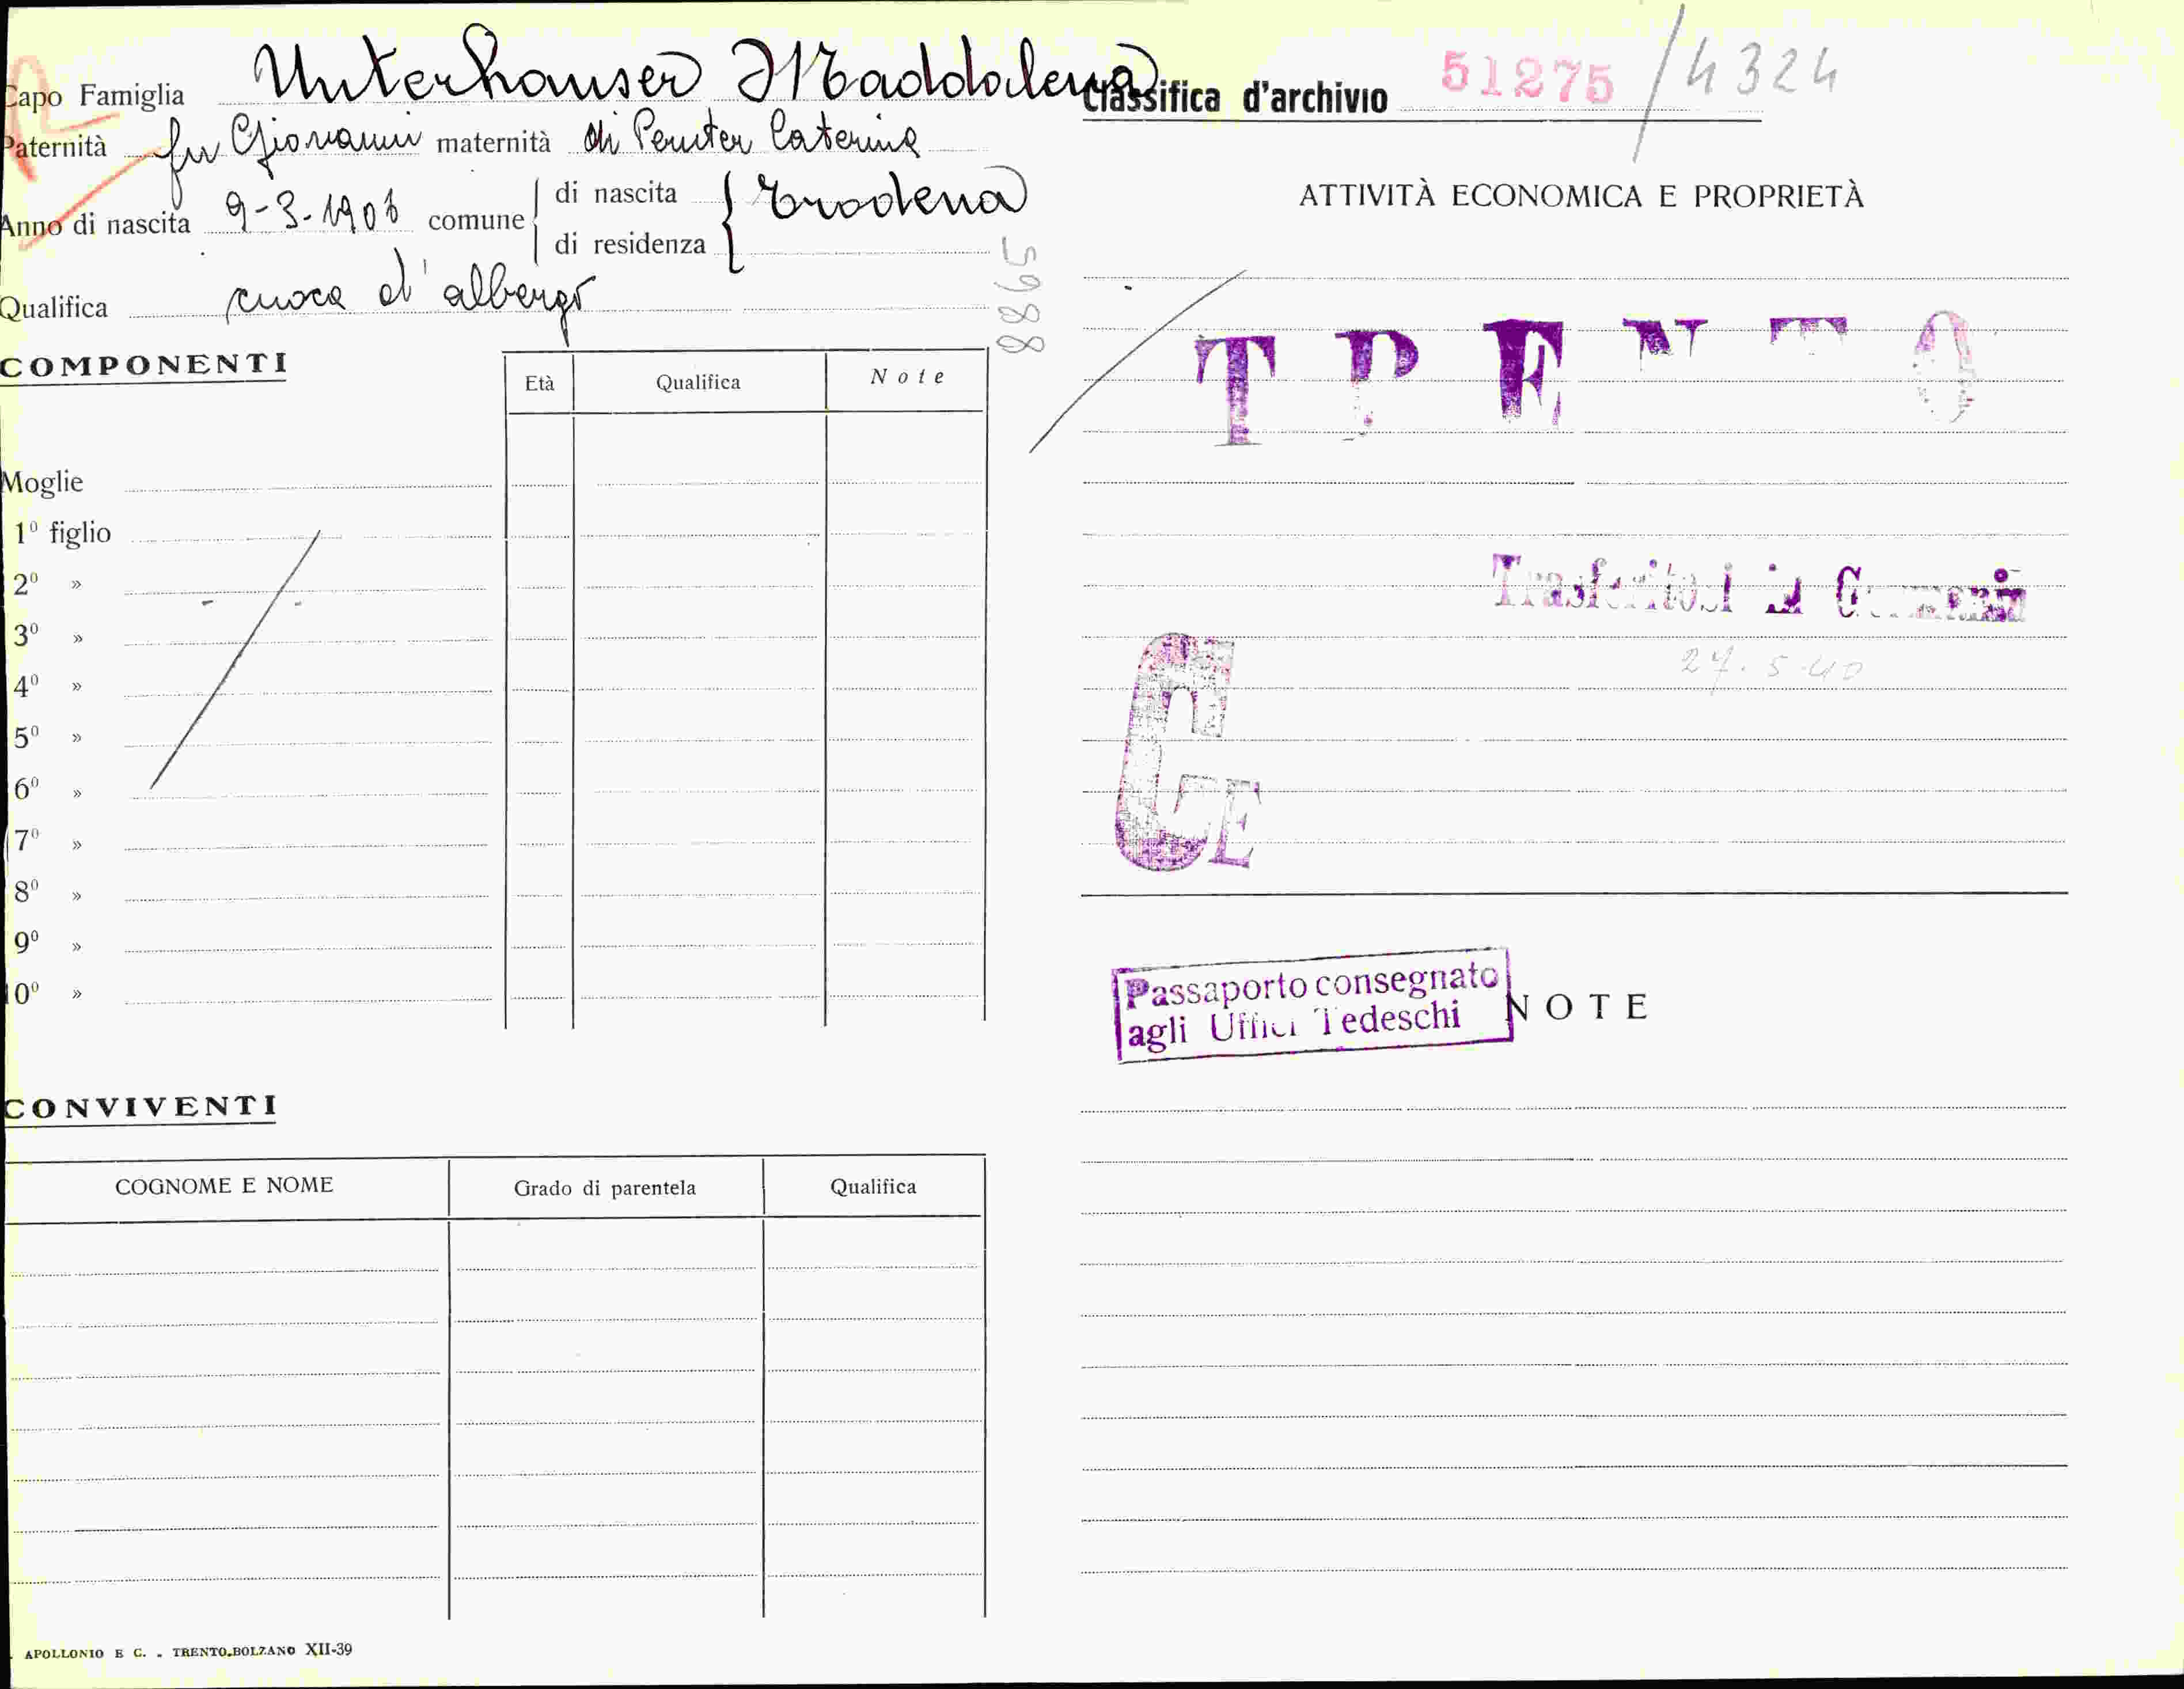 Capo Famiglia Unterhauser Maddalena
Paternità fu Giovanni maternità di Perwter Caterina
Anno di nascita 9-3-1906 comune di nascita Trodena
di residenza
Qualifica cuoca d'albergo
5988
COMPONENTI
Età Qualifica Note
Moglie
1º figlio
2º »
3º »
4º »
5º »
6º »
7º »
8º »
9º »
10º »
CONVIVENTI
COGNOME E NOME Grado di parentela Qualifica
APOLLONIO E C. - TRENTO-BOLZANO XII-39
Classifica d'archivio 51275 / 4324
ATTIVITÀ ECONOMICA E PROPRIETÀ
TRENTO
Trasferitosi in Germania
27.5.40
GE
Passaporto consegnato
agli Uffici Tedeschi
NOTE